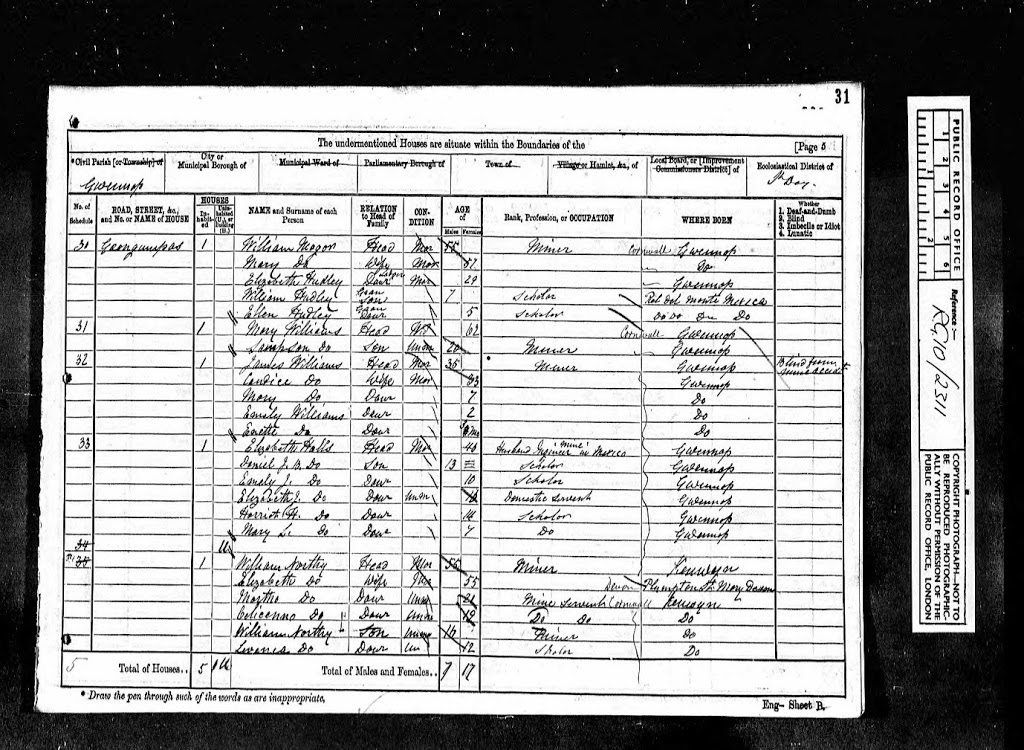 31
The undermentioned Houses are situate within the Boundaries of the [Page 5
Civil Parish [or Township] of
City or Municipal Borough of
Municipal Ward of
Parliamentary Borough of
Town of
Village or Hamlet, &c., of
Local Board, or [Improvement Commissioners District] of
Ecclesiastical District of
Gwennap
St Day.
No. of Schedule
ROAD, STREET, &c., and No. or NAME of HOUSE
HOUSES
Inhabited
Uninhabited (U.), or Building (B.)
NAME and Surname of each Person
RELATION to Head of Family
CONDITION
AGE of
Males
Females
Rank, Profession, or OCCUPATION
WHERE BORN
Whether
1. Deaf-and-Dumb
2. Blind
3. Imbecile or Idiot
4. Lunatic
30 1 William Head Mar 55 Miner Cornwall Gwennap
Mary Do Wife Mar 57 Do
Elizabeth Hudley Daur Mar 29 Gwennap
William Hudley Gran Son 7 Scholar Real del Monte Mexico
Ellen Hudley Gran Daur 5 Scholar Do Do Do
31 1 Mary Williams Head 62 Cornwall Gwennap
Sampson Do Son Unm 20 Miner Gwennap
32 1 James Williams Head Mar 35 Miner Gwennap Blind from mine accident
Candice Do Wife Mar 33 Gwennap
Mary Do Daur 7 Do
Emily Williams Daur 2 Do
Do Daur Do
33 1 Elizabeth Halls Head Mar 40 Husband Mine Engineer in Mexico Gwennap
Daniel J. B. Do Son 13 Scholar Gwennap
Emely J. Do Daur 10 Scholar Gwennap
Elizabeth J. Do Daur Unm Domestic Servent Gwennap
Harriet H. Do Daur 14 Scholar Gwennap
Mary L. Do Daur 7 Do Gwennap
34 U
35 1 William Northy Head Mar 56 Miner Kenwyn
Elizabeth Do Wife Mar 55 Devon Plympton St Mary Devon
Martha Do Daur Unm 21 Mine Servent Cornwall Kenwyn
Do Daur Unm 19 Do Do Do
William Northy Son Unm 16 Miner Do
Do Daur Un 12 Scholar Do
5 Total of Houses.. 5 1 U Total of Males and Females.. 7 17
* Draw the pen through such of the words as are inappropriate,
Eng- Sheet B.
PUBLIC RECORD OFFICE
1 2 3 4 5 6
1 2
Reference :-
RG10/2311
COPYRIGHT PHOTOGRAPH—NOT TO BE REPRODUCED PHOTOGRAPHICALLY WITHOUT PERMISSION OF THE PUBLIC RECORD OFFICE, LONDON